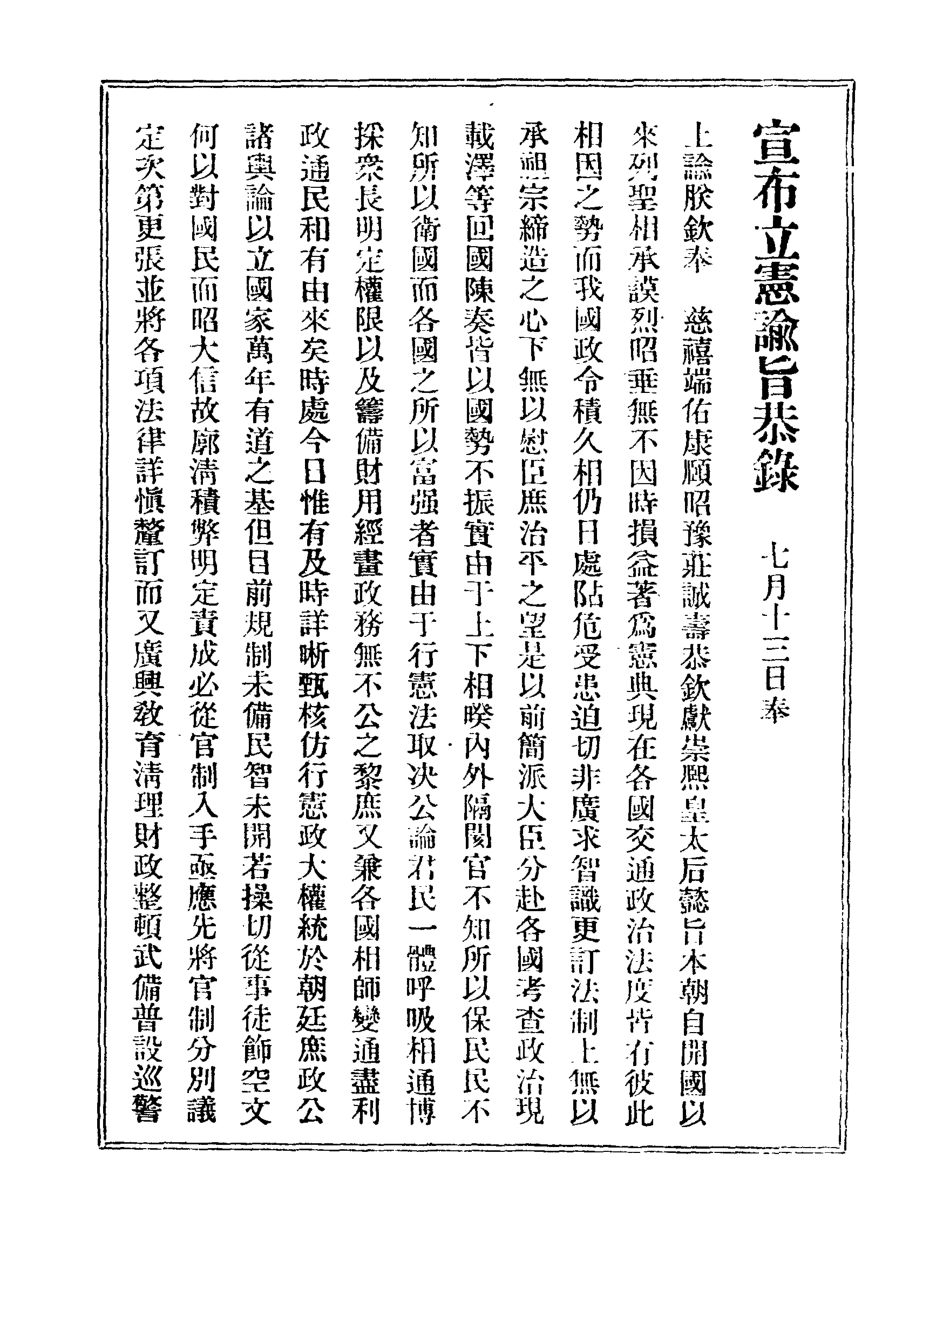 宣布立憲諭旨恭錄　七月十三日奉
上諭朕欽奉　慈禧端佑康頤昭豫莊誠壽恭欽獻崇熙皇太后懿旨本朝自開國以
來列聖相承謨烈昭垂無不因時損益著爲憲典現在各國交通政治法度皆有彼此
相因之勢而我國政令積久相仍日處阽危受患迫切非廣求智識更訂法制上無以
承祖宗締造之心下無以慰臣庶治平之望是以前簡派大臣分赴各國考查政治現
載澤等回國陳奏皆以國勢不振實由于上下相暌內外隔閡官不知所以保民民不
知所以衛國而各國之所以富强者實由于行憲法取决公論君民一體呼吸相通博
採衆長明定權限以及籌備財用經畫政務無不公之黎庶又兼各國相師變通盡利
政通民和有由來矣時處今日惟有及時詳晰甄核仿行憲政大權統於朝廷庶政公
諸輿論以立國家萬年有道之基但目前規制未備民智未開若操切從事徒飾空文
何以對國民而昭大信故廓清積弊明定責成必從官制入手亟應先將官制分別議
定次第更張並將各項法律詳愼釐訂而又廣興敎育清理財政整頓武備普設巡警